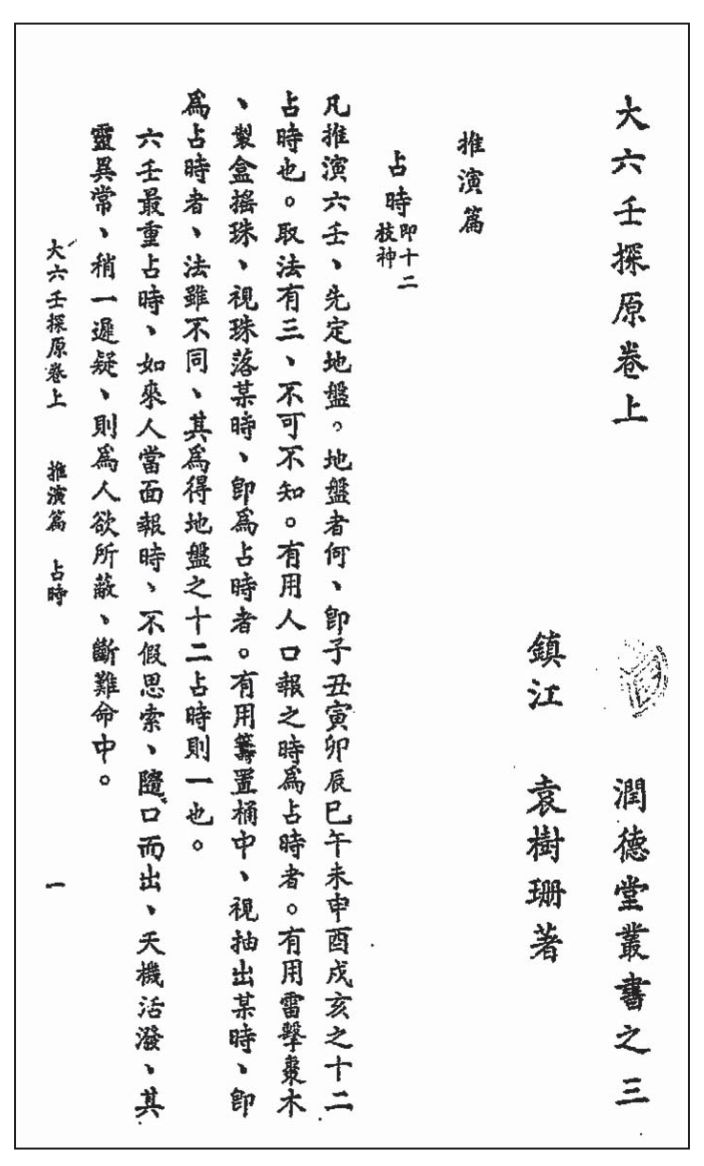 大六壬探原卷上
潤德堂叢書之三
鎮江　袁樹珊著
推演篇
占時即十二枝神
凡推演六壬、先定地盤。地盤者何、卽子丑寅卯辰巳午未申酉戌亥之十二
占時也。取法有三、不可不知。有用人口報之時爲占時者。有用雷擊棗木
、製盒搖珠、視珠落某時、卽爲占時者。有用籌置桶中、視抽出某時、卽
爲占時者、法雖不同、其爲得地盤之十二占時則一也。
六壬最重占時、如來人當面報時、不假思索、隨口而出、天機活潑、其
靈異常、稍一遲疑、則爲人欲所蔽、斷難命中。
大六壬探原卷上　推演篇　占時　一